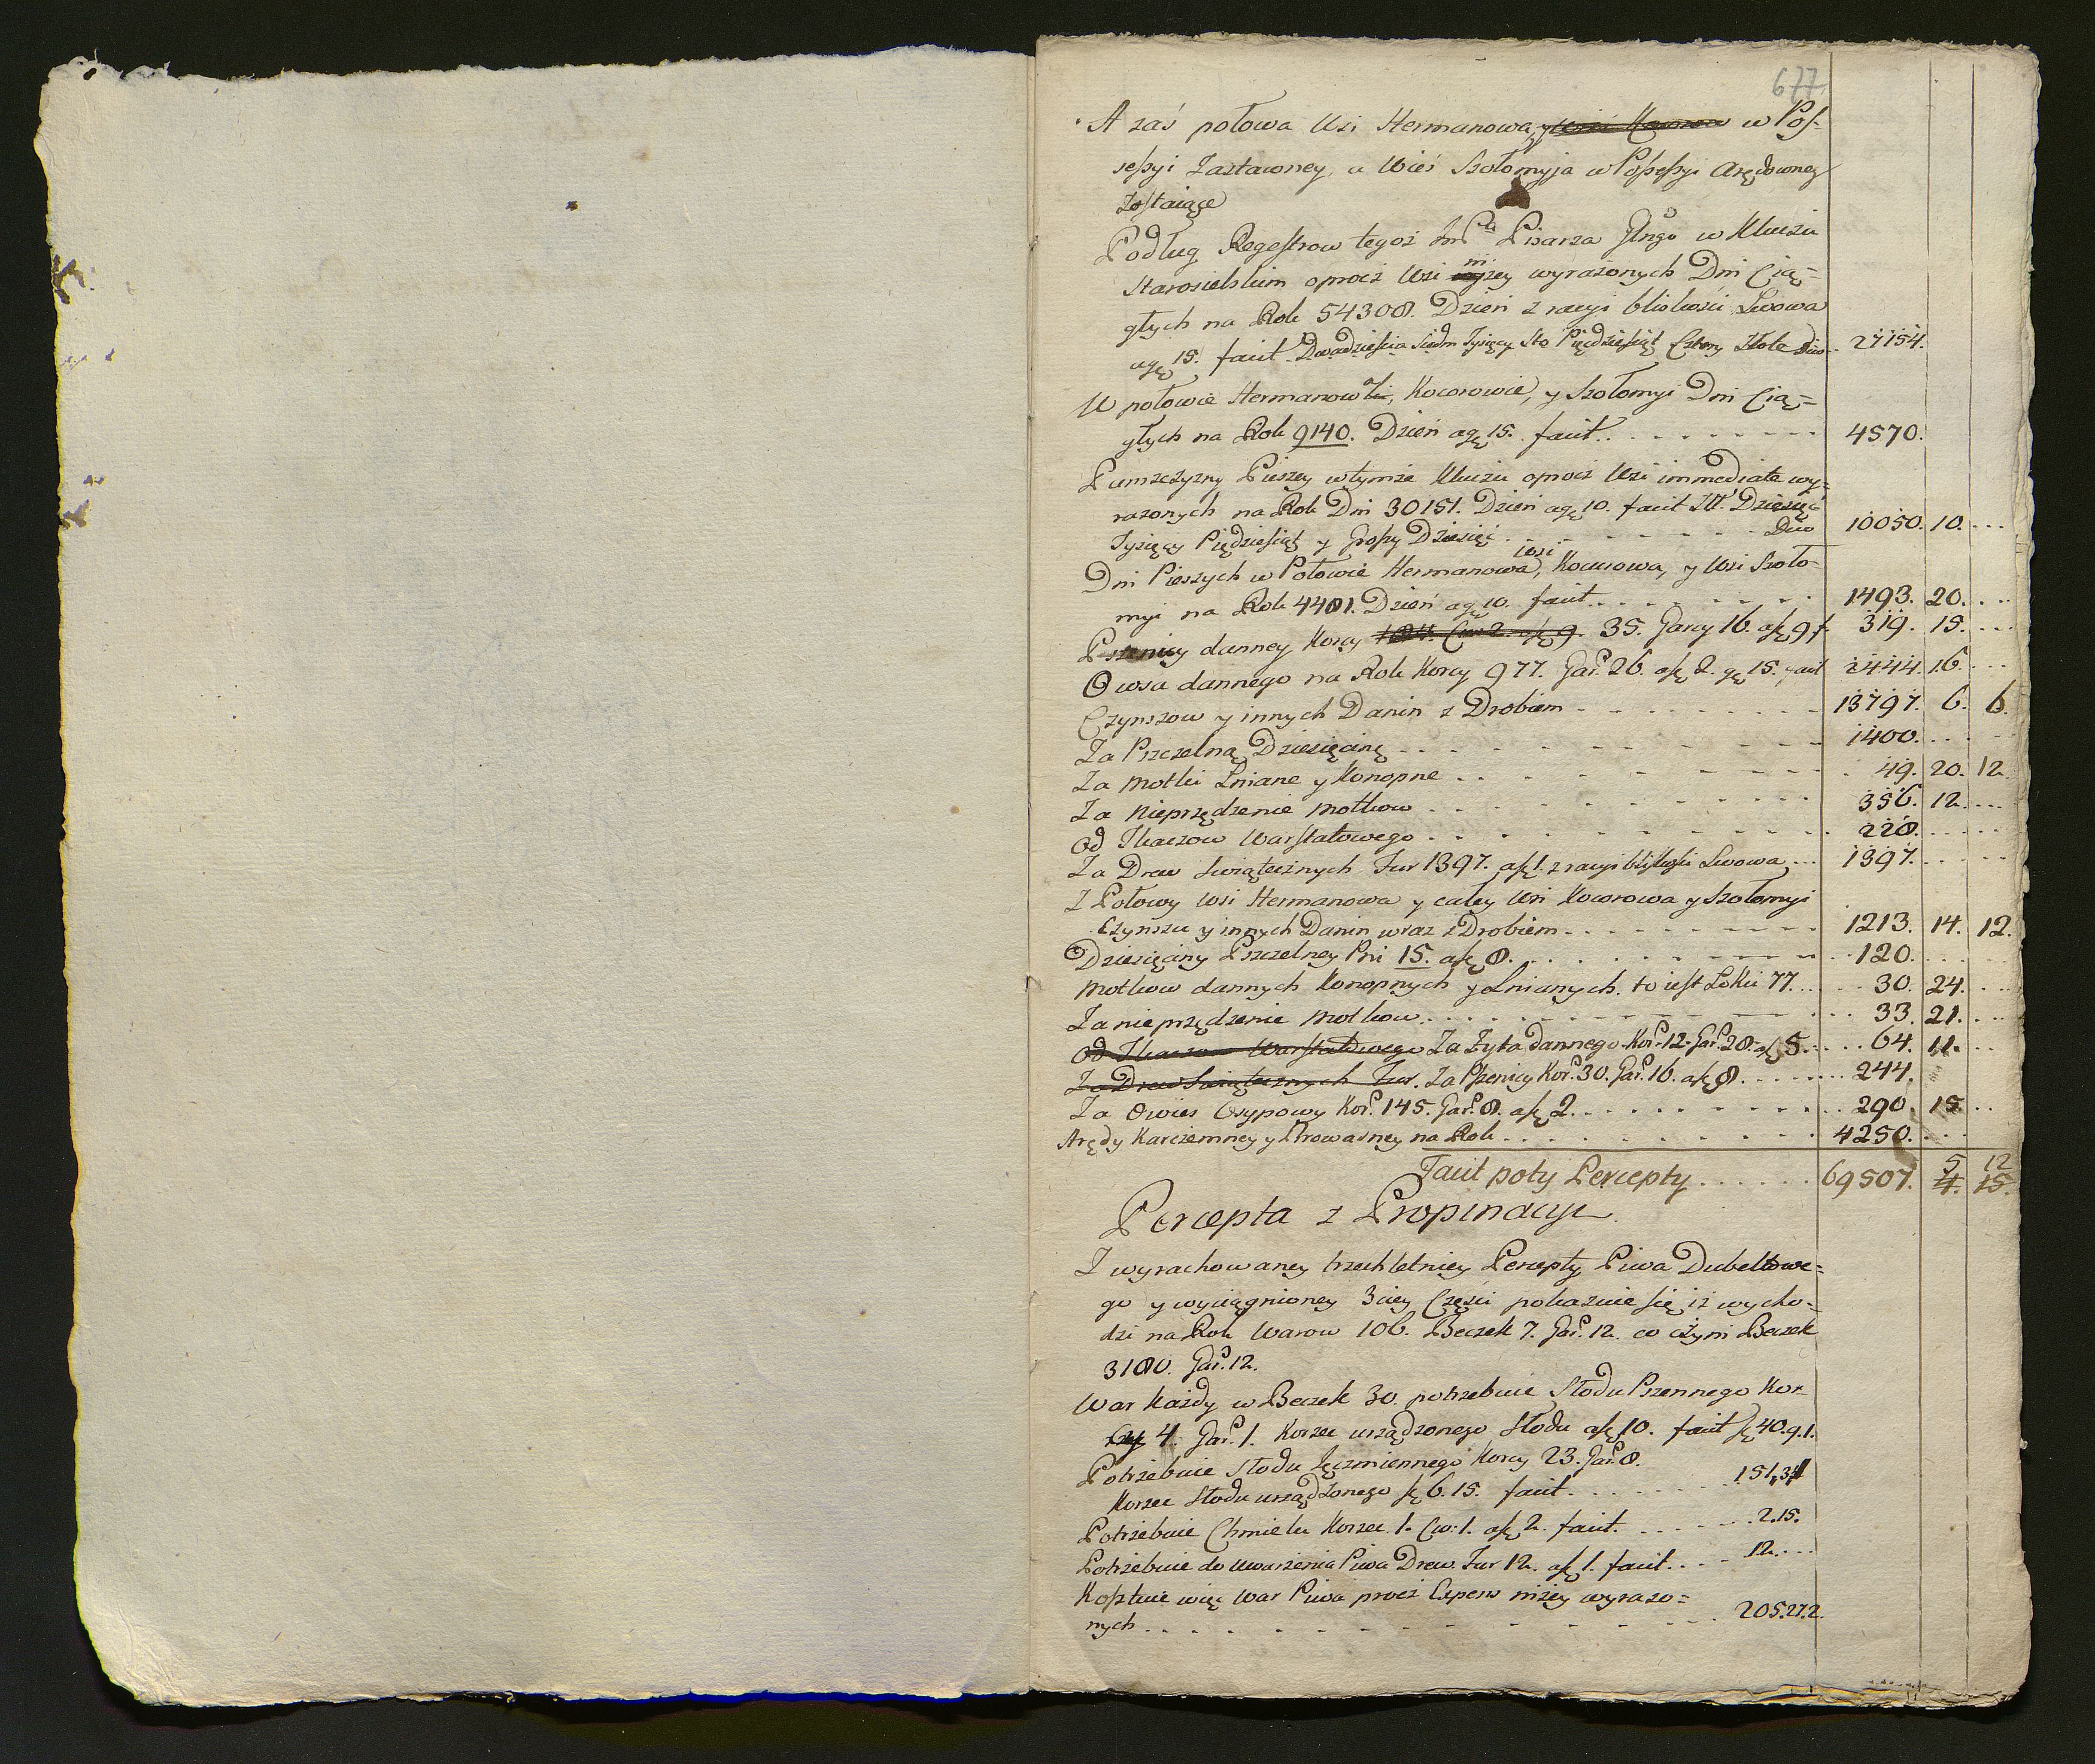 677
A zaś połowa Wsi Hermanowa, y Wieś Kocorow w Pos-
sessyi Zastawney, a Wieś Szołomyja w Possessyi Arędowney
zostaiące
Podług Regestrow tegoż Jm Pa Pisarza Gngo w Kluczu
Starosielskim oprocz Wsi niżey wyrażonych Dni Cią=
głych na Rok 54308. Dzień z racyi bliskości Lwowa
a gę 15. facit Dwadzieścia Siedm Tysięcy Sto Pięćdziesiąt Cztery Złote 27154.
W połowie Hermanowa, Kocorowie, y Szołomyi Dni Cią=
głych na Rok 9140. Dzień a gę 15. facit. 4570.
Pamszczyzny Pieszey w tymże Kluczu oprocz Wsi immediate wy=
rażonych na Rok Dni 30151. Dzień a gę 10. facit Zł. Dziesięć
Tysięcy Pięćdziesiąt y Groszy Dziesięć 10050. 10.
Dni Pieszych w Połowie Hermanowa, Wsi Kocurowa, y Wsi Szoło-
myi na Rok 4481. Dzień a gę 10. facit. 1493. 20.
Pszenicy danney Korcy 35. Garcy 16. a fę 9 f. 319. 15.
Owsa dannego na Rok Korcy 977. Gar. 26. a fę 2. gę 15. facit 2444. 16.
Czynszow y innych Danin z Drobiem 13797. 6. 6.
Za Pszczelną Dziesięcinę 1400.
Za Motki Lniane y Konopne 49. 20. 12.
Za Nieprzędzenie Motkow 356. 12.
Od Tkaczow Warsztatowego 228.
Za Drew Swiątecznych Fur 1397. a fę 1. z racyi bliskości Lwowa 1397.
Z Połowy Wsi Hermanowa y całey Wsi Kocorowa y Szołomyi
Czynszu y innych Danin wraz z Drobiem 1213. 14. 12.
Dziesięciny Pszczelney Pni 15. a fę 8. 120.
Motkow dannych Konopnych y Lnianych. to iest Łokci 77. 30. 24.
Za nieprzędzenie Motkow. 33. 21.
Od Tkaczow Warsztatowego Za Żyta dannego Kor. 12. Gar. 28. a fę 5. 64. 11.
Za Drew Swiątecznych Fur. Za Pszenicy Kor. 30. Gar. 16. a fę 8. 244.
Za Owies Osypowy Kor. 145. Gar. 8. a fę 2. 290. 15
Arędy Karczemney y Browarney na Rok 4250.
Facit poty Percepty 69507. 5 12
4. 15.
Percepta z Propinacyi.
Z wyrachowaney trzechletniey Percepty Piwa Dubeltowe=
go y wyciągnioney 3ciey Części pokazuie się iż wycho-
dzi na Rok Warow 106. Beczek 7. Gar. 12. co czyni Beczek
3180. Gar. 12.
War Każdy w Beczek 30. potrzebuie Słodu Pszennego Kor
cy 4. Gar. 1. Korzec urządzonego Słodu a fę 10. facit fę 40. 9. 1.
Potrzebuie Słodu Jęczmiennego Korcy 23. Gar. 8.
Korzec Słodu urządzonego fę 6. 15. facit. 151. 3.
Potrzebuie Chmielu Korzec 1. Cw: 1. a fę 2. facit. 2. 15.
Potrzebuie do Uwarzenia Piwa Drew Fur 12. a fę 1. facit. 12.
Kosztuie więc War Piwa procz Expens niżey wyrażo=
nych 205. 27. 2.